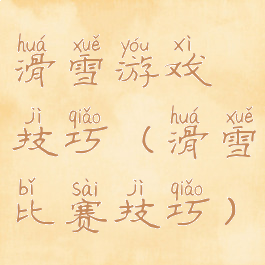 huá xuě yóu xì
滑雪游戏
jì qiǎo huá xuě
技巧（滑雪
bǐ sài jì qiǎo
比赛技巧）